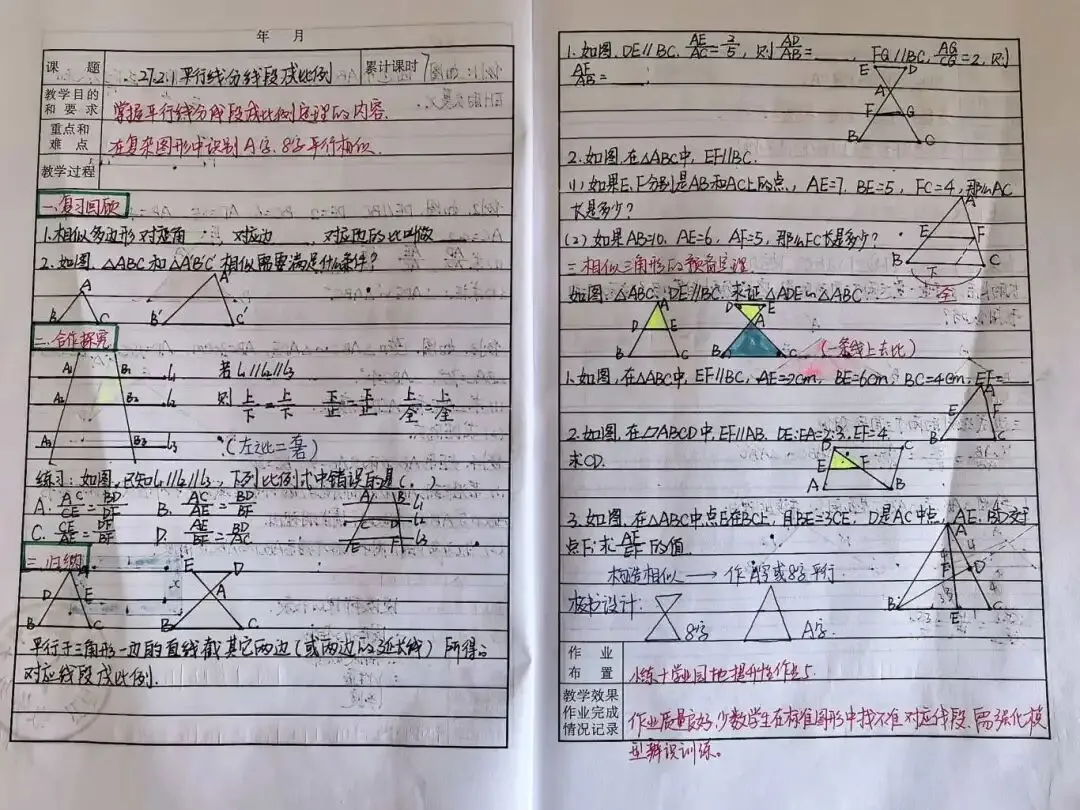 年 月
课 题 27.2.1平行线分线段成比例 累计课时 7
教学目的
和 要求 掌握平行线分线段成比例定理的内容.
重点和
难 点 在复杂图形中识别A字.8字平行相似.
教学过程
一.复习回顾
1.相似多边形对应角____,对应边____,对应边的比叫做____
2.如图.△ABC和△A'B'C'相似需要满足什么条件?
A A'
B C B' C'
二.合作探究
A₁ B₁ l₁ 若l₁//l₂//l₃
A₂ B₂ l₂ 则 上/下=上/下 下/上=下/上 上/全=上/全
A₃ B₃ l₃ (左比=右比)
练习:如图.已知l₁//l₂//l₃,下列比例式中错误的是( )
A. AC/CE=BD/DF B. AC/AE=BD/BF
C. CE/AE=DF/BF D. AE/BF=BD/AC
A B l₁
C D l₂
E F l₃
三.归纳
A E D
D E A
B C B C
平行于三角形一边的直线截其它两边(或两边的延长线)所得的
对应线段成比例.
1.如图.DE//BC.AE/AC=2/5,则AD/AB=____ FG//BC,AG/CG=2,则
AF/AB=____
E D
A
F G
B C
2.如图.在△ABC中,EF//BC.
(1)如果E、F分别是AB和AC上的点,AE=7.BE=5,FC=4,那么AC
长是多少?
(2)如果AB=10.AE=6,AF=5,那么FC长是多少?
A
E F
B C
下
全
三.相似三角形的预备定理.
如图:△ABC.DE//BC.求证△ADE∽△ABC
A D E
D E A
B C B C (一条线上去比)
1.如图.在△ABC中,EF//BC,AE=2cm,BE=6cm,BC=4cm,EF=____
A
E F
B C
2.如图.在▱ABCD中,EF//AB.DE:EA=2:3.EF=4.
求CD.
D C
E F
A B
3.如图.在△ABC中.点E在BC上,且BE=3CE,D是AC中点,AE、BD交于
点F:求AF/EF的值.
构造相似→作A字或8字平行.
A
F D
B E C
板书设计: 8字 A字.
作 业
布 置 小练+学业园地提升性作业5.
教学效果
作业完成
情况记录 作业质量良好,少数学生在标准图形中找不准对应线段,需强化模
型辨识训练。